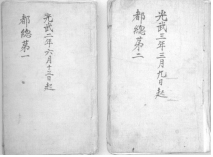 光武二年六月十三日起
都總第一
光武三年三月九日起
都總第二